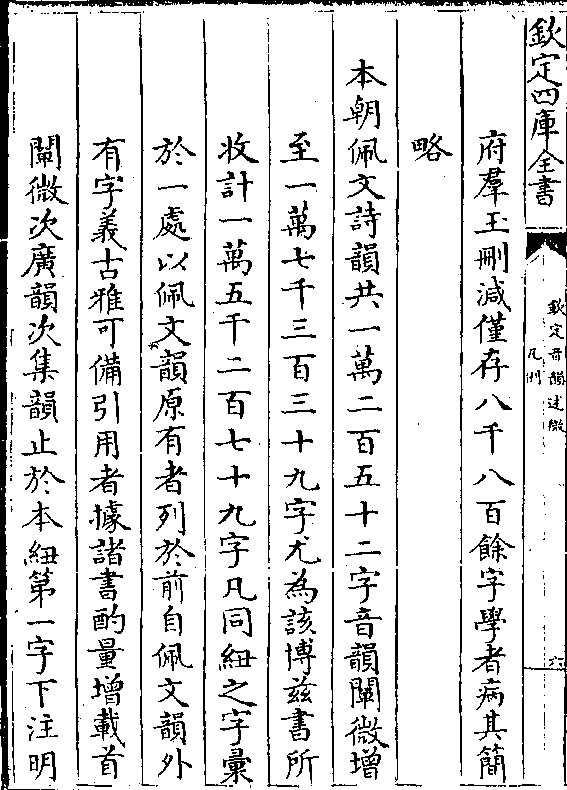 欽定四庫全書
欽定音韻述微
凡例
六
府羣玉刪減僅存八千八百餘字學者病其簡
略
本朝佩文詩韻共一萬二百五十二字音韻闡微增
至一萬七千三百三十九字尤為該博兹書所
收計一萬五千二百七十九字凡同紐之字彙
於一處以佩文韻原有者列於前自佩文韻外
有字義古雅可備引用者據諸書酌量增載首
闡微次廣韻次集韻止於本紐第一字下注明